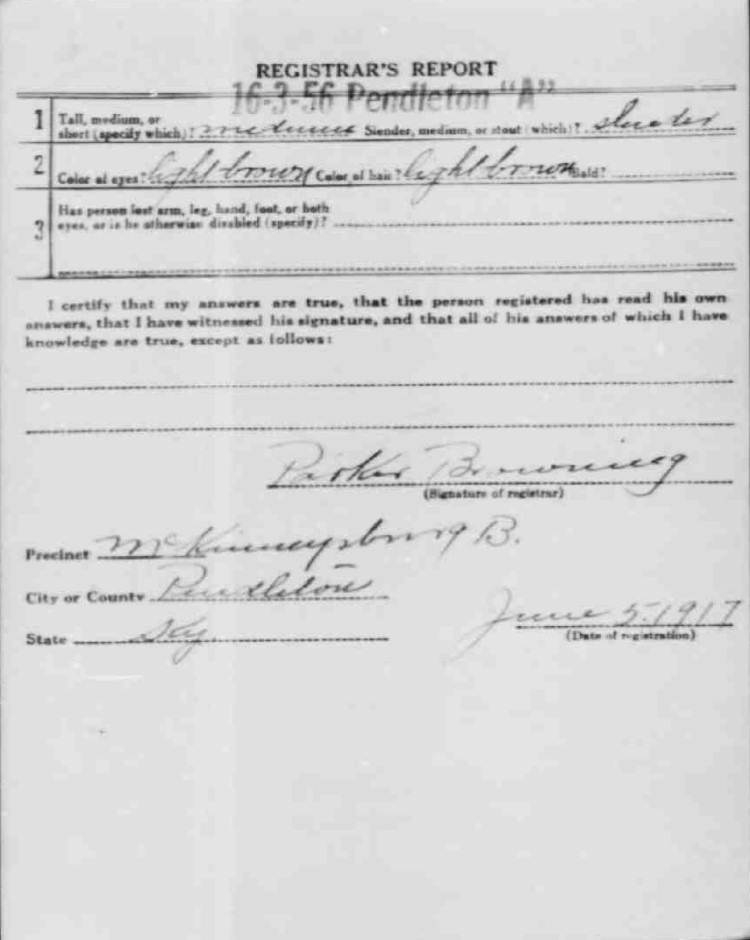 REGISTRAR'S REPORT
16-3-56 Pendleton "A"
1 Tall, medium, or
short (specify which)? medium Slender, medium, or stout (which)? slender
2 Color of eyes? light brown Color of hair? light brown Bald?
3 Has person lost arm, leg, hand, foot, or both
eyes, or is he otherwise disabled (specify)?
I certify that my answers are true, that the person registered has read his own
answers, that I have witnessed his signature, and that all of his answers of which I have
knowledge are true, except as follows:
Parker Browning
(Signature of registrar)
Precinct McKinneysburg B.
City or County Pendleton
State Ky.
June 5. 1917
(Date of registration)